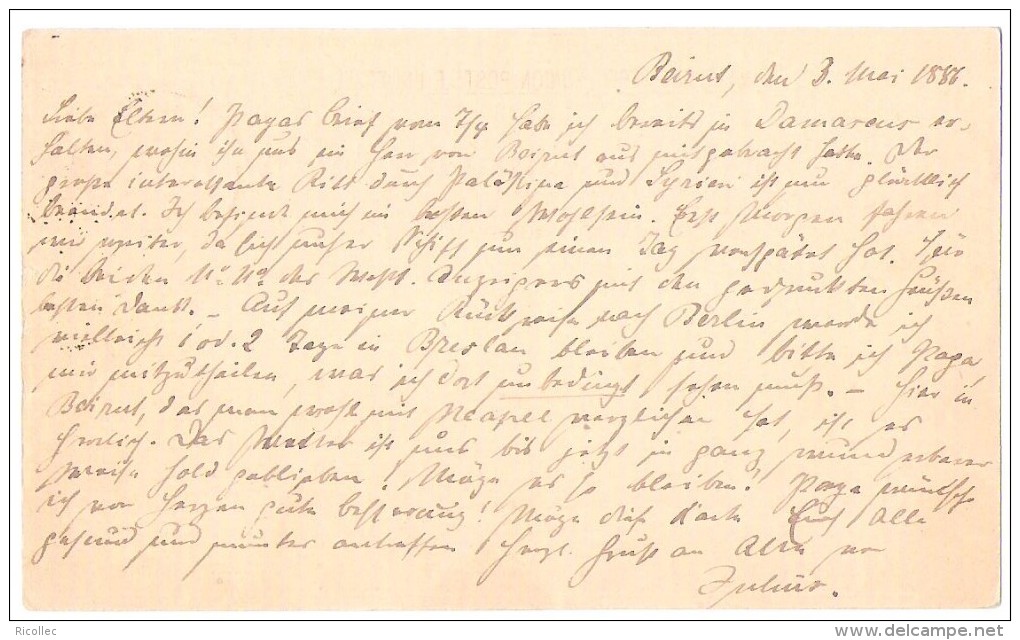 Beirut, den 3. Mai 1886.
Liebe Eltern! Papas Brief vom 7/4 habe ich bereits in Damascus er-
halten, wohin ihn uns ein Herr von Beirut aus mitgebracht hatte. Der
große interessante Ritt durch Palästina und Syrien ist nun glücklich
beendet. Ich befinde mich im besten Wohlsein. Erst Morgen fahren
wir weiter, da sich unser Schiff um einen Tag verspätet hat. Für
die beiden No. No. des Anzeigers mit den gedruckten Grüßen
besten Dank. – Auf meiner Rückreise nach Berlin werde ich
vielleicht 1 od. 2 Tage in Breslau bleiben und bitte ich Papa
mir mitzutheilen, was ich dort unbedingt sehen muß. – Hier in
Beirut, das man wohl mit Neapel verglichen hat, ist es
herrlich. Das Wetter ist uns bis jetzt in ganz wunderbarer
Weise hold geblieben. Möge es so bleiben! Papa wünsche
ich von Herzen gute Besserung! Möge diese Karte Euch Alle
gesund und munter antreffen. Herzl. Gruß an Alle von
Julius.
Ricollec
www.delcampe.net